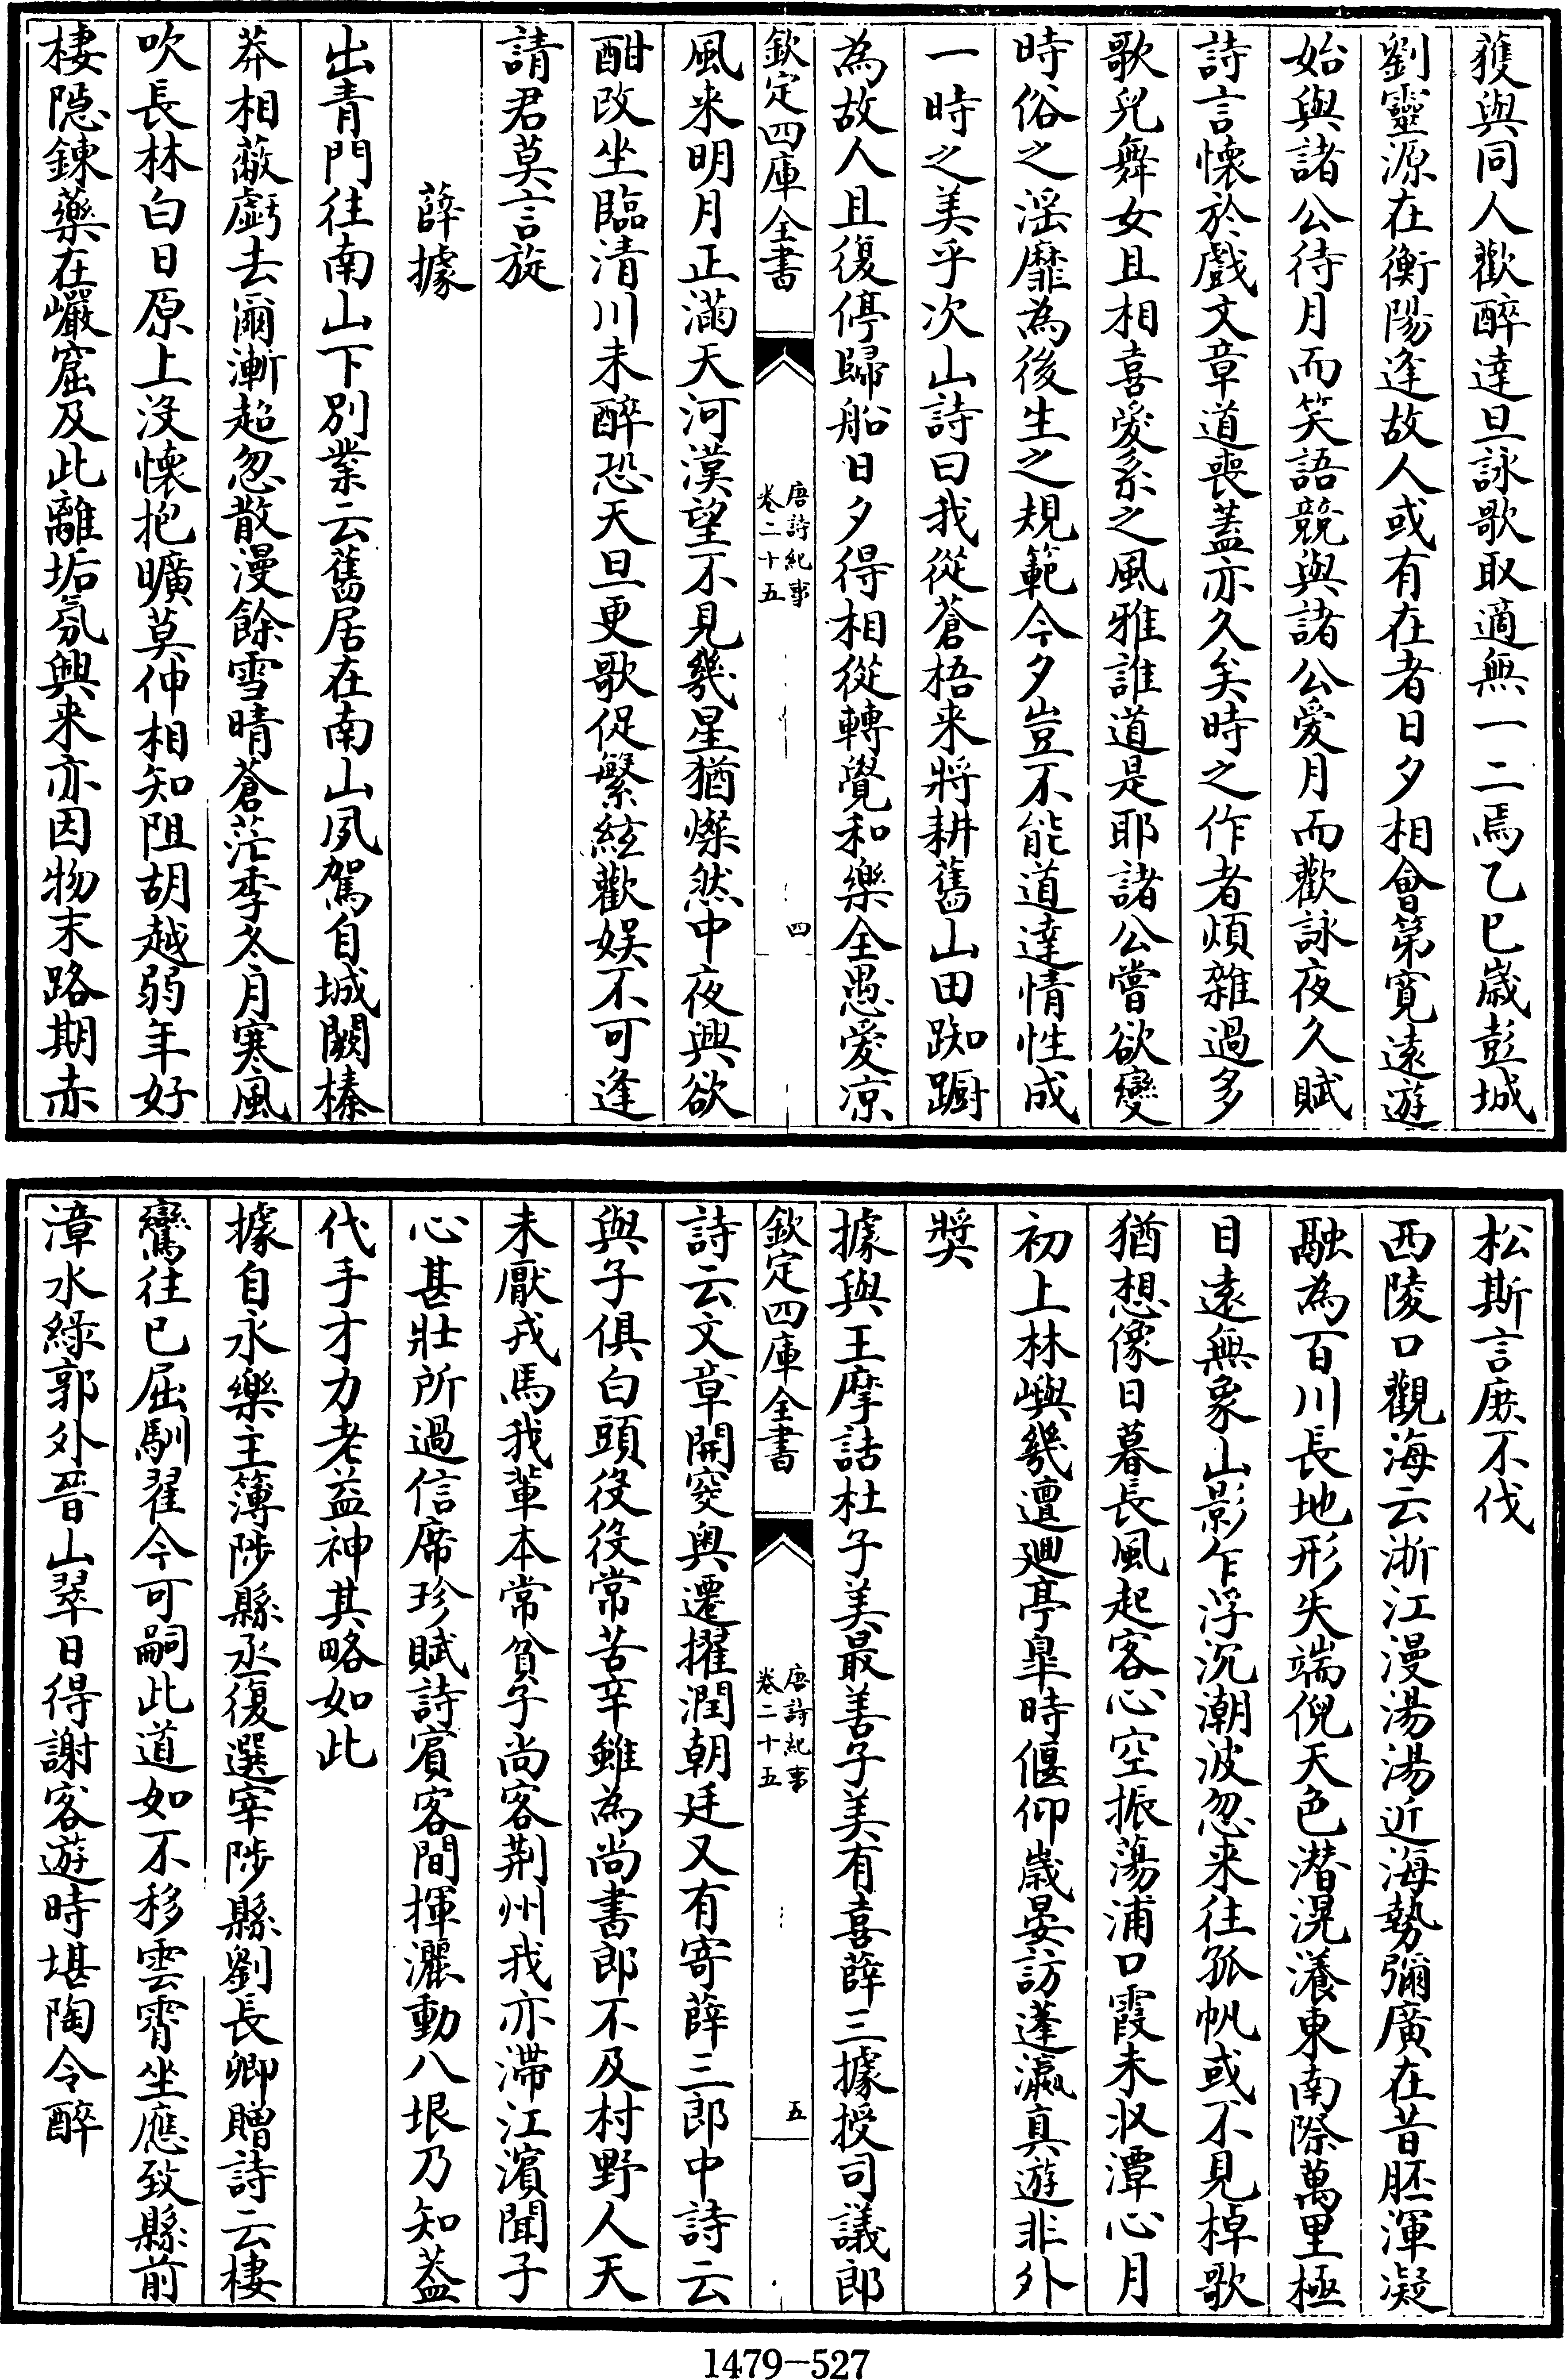 獲與同人歡醉達旦詠歌取適無一二焉乙巳歲彭城
劉靈源在衡陽逢故人或有在者日夕相會第寛遠遊
始與諸公待月而笑語競與諸公愛月而歡詠夜久賦
詩言懷於戲文章道喪蓋亦久矣時之作者煩雜過多
歌兒舞女且相喜愛系之風雅誰道是耶諸公嘗欲變
時俗之淫靡為後生之規範今夕豈不能道達情性成
一時之美乎次山詩曰我從蒼梧来將耕舊山田踟蹰
為故人且復停歸船日夕得相從轉覺和樂全愚愛凉
欽定四庫全書
唐詩紀事
卷二十五
四
風来明月正滿天河漢望不見幾星猶燦然中夜興欲
酣改坐臨清川未醉恐天旦更歌促繁絃歡娱不可逢
請君莫言旋
薛據
出青門往南山下別業云舊居在南山夙駕自城闕榛
莽相蔽虧去爾漸超忽散漫餘雪晴蒼茫季冬月寒風
吹長林白日原上沒懷抱曠莫伸相知阻胡越弱年好
棲隠鍊藥在巖窟及此離垢氛興来亦因物末路期赤
松斯言庶不伐
西陵口觀海云浙江漫湯湯近海勢彌廣在昔胚渾凝
融為百川長地形失端倪天色潜滉瀁東南際萬里極
目遠無象山影乍浮沉潮波忽来往孤帆或不見棹歌
猶想像日暮長風起客心空振蕩浦口霞未收潭心月
初上林嶼幾邅廻亭臯時偃仰歲晏訪蓬瀛真遊非外
奬
據與王摩詰杜子美最善子美有喜薛三據授司議郎
欽定四庫全書
唐詩紀事
卷二十五
五
詩云文章開突奥遷擢潤朝廷又有寄薛三郎中詩云
與子俱白頭役役常苦辛雖為尚書郎不及村野人天
未厭戎馬我輩本常貧子尚客荆州我亦滯江濱聞子
心甚壯所過信席珍賦詩賓客間揮灑動八垠乃知蓋
代手才力老益神其略如此
據自永樂主簿陟縣丞復選宰陟縣劉長卿贈詩云棲
鸞往已屈馴翟今可嗣此道如不移雲霄坐應致縣前
漳水綠郭外晉山翠日得謝客遊時堪陶令醉
1479-527